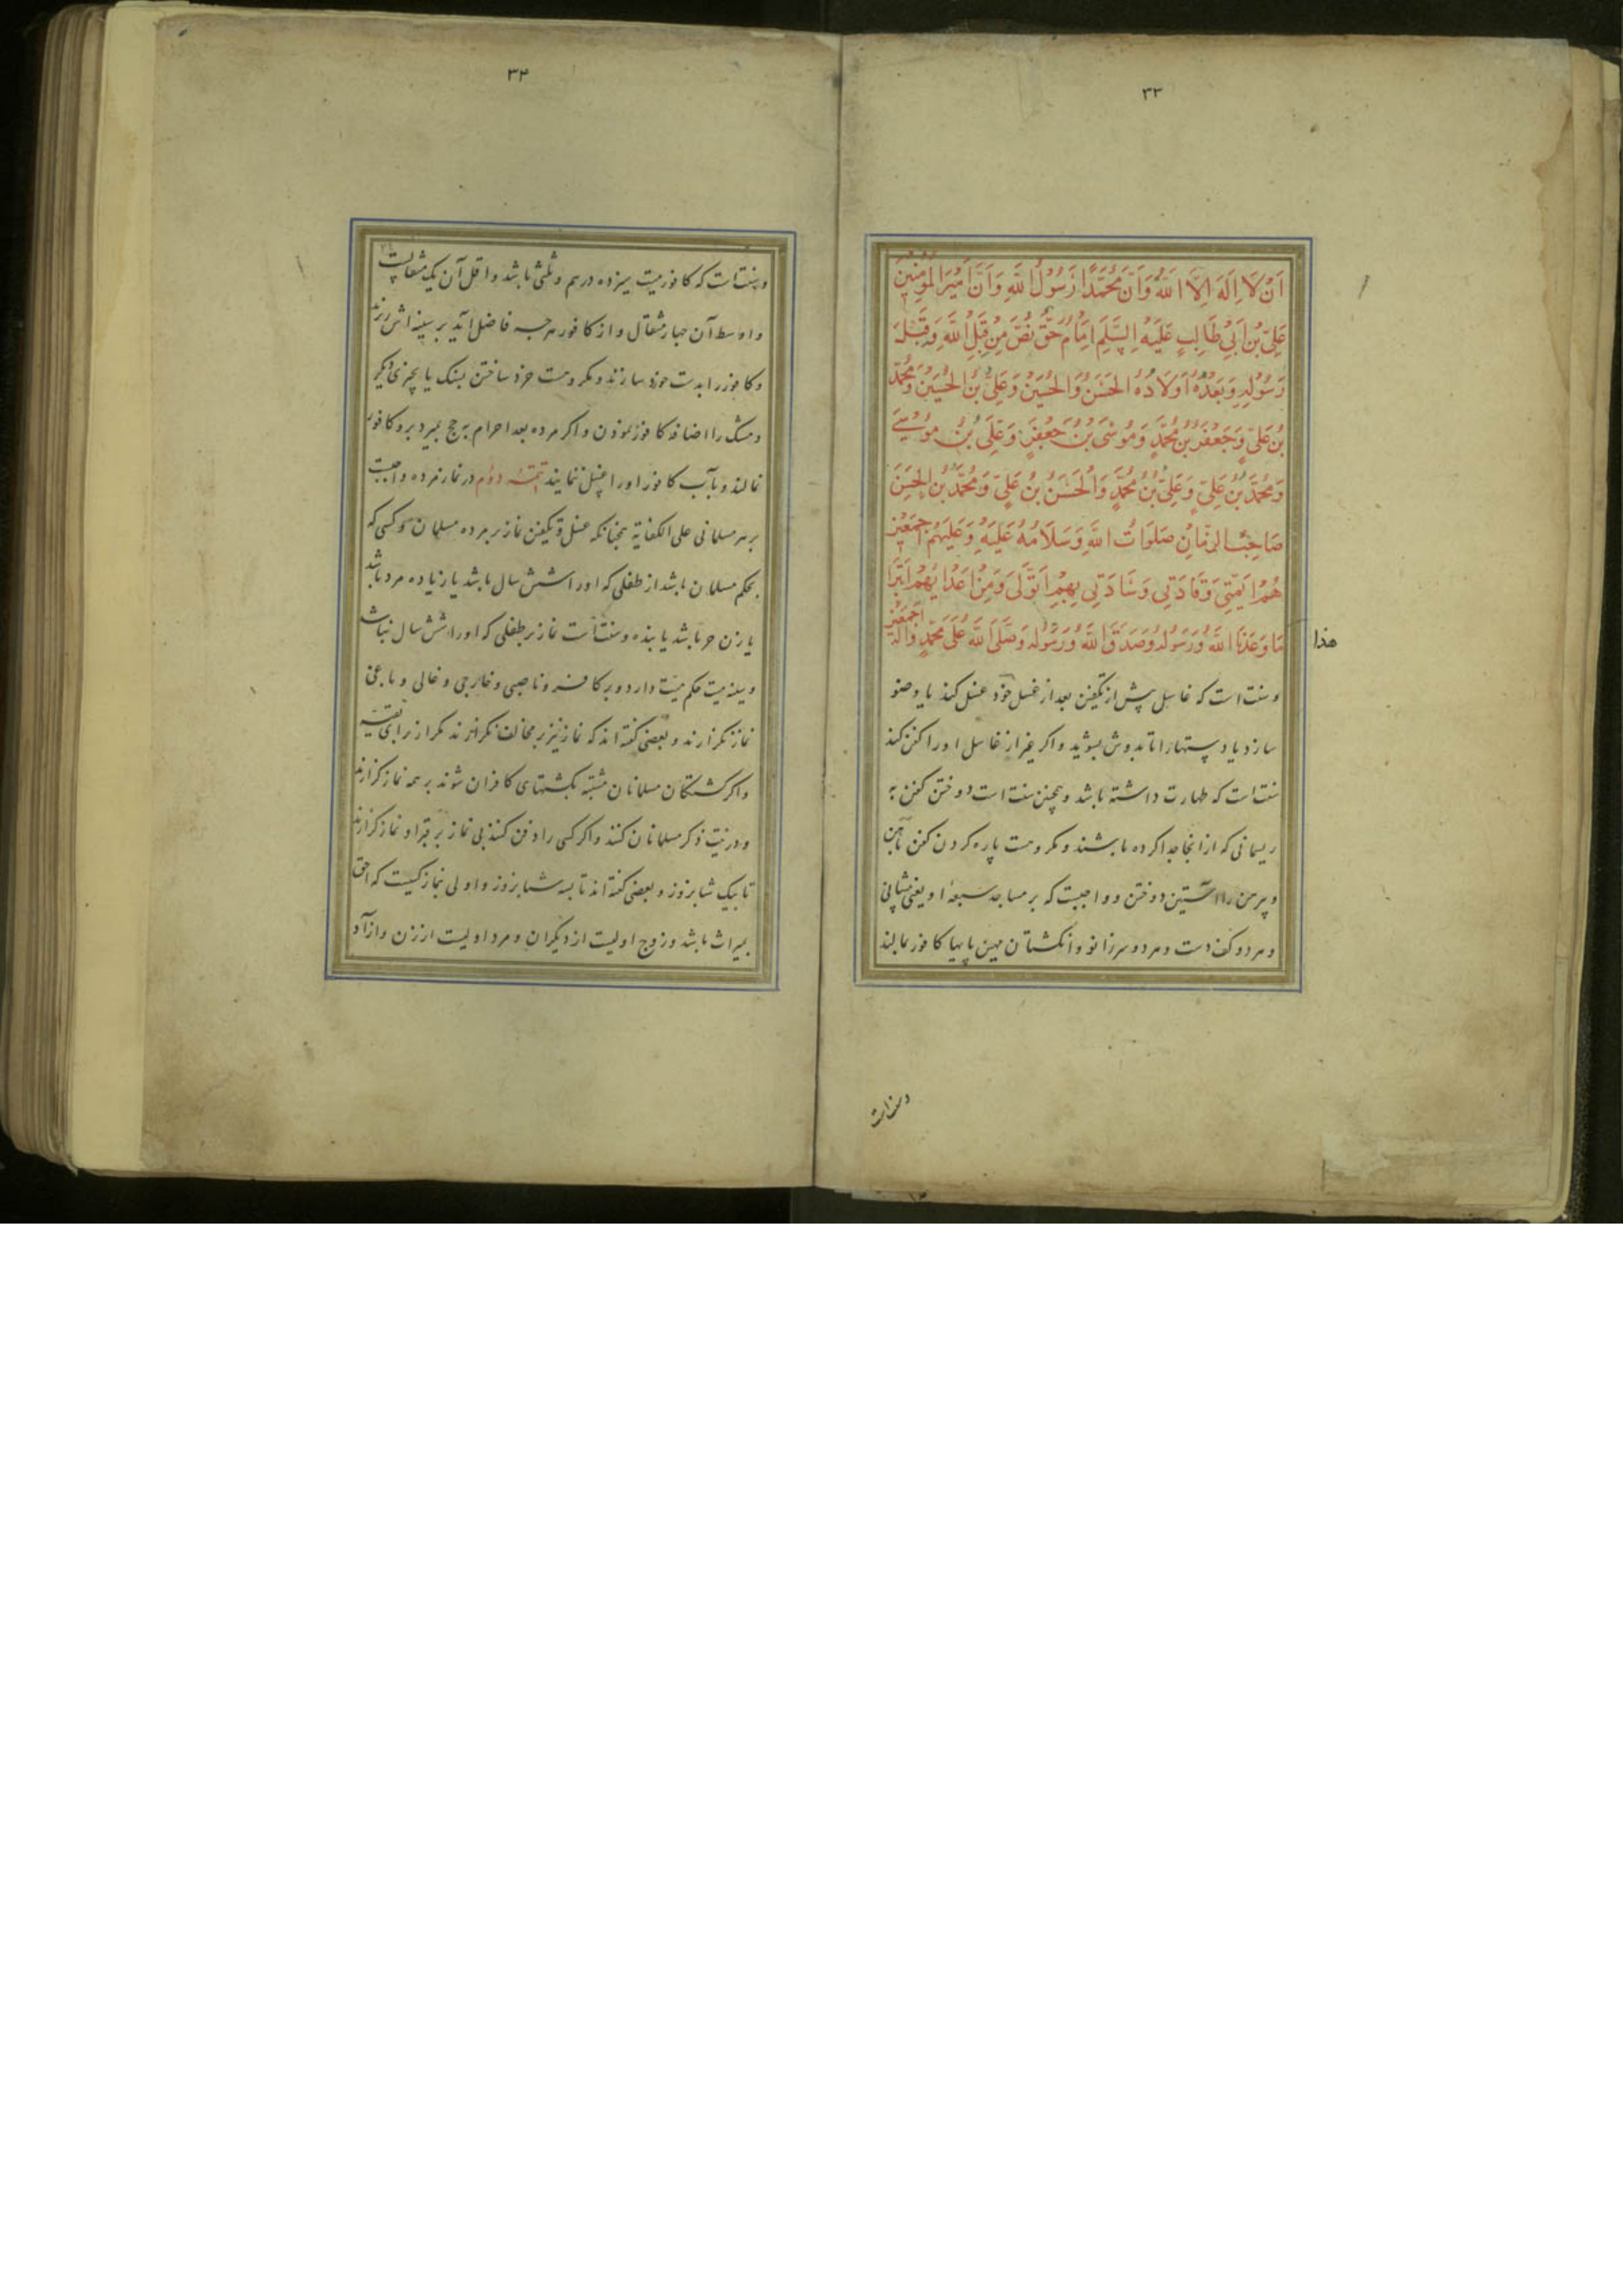 ۳۳
اَنْ لَا اِلَهَ اِلَّا اللهُ وَاَنَّ مُحَمَّدًا رَسُوْلُ اللهِ وَاَنَّ اَمِيْرَ المُؤمِنِيْنَ
عَلِيَّ بْنَ اَبِيْ طَالِبٍ عَلَيْهِ السَّلَم اِمَامُ حَقٍّ نُصَّ مِنْ قِبَلِ اللهِ وَقِبَلِ
رَسُوْلِهِ وَبَعْدَهُ اَوْلَادُهُ الحَسَنُ وَالحُسَيْنُ وَعَلِيُّ بْنُ الحُسَيْنِ وَمُحَمَّدُ
بْنُ عَلِيٍّ وَجَعْفَرُ بْنُ مُحَمَّدٍ وَمُوْسَى بْنُ جَعْفَرٍ وَعَلِيُّ بْنُ مُوْسَى
وَمُحَمَّدُ بْنُ عَلِيٍّ وَعَلِيُّ بْنُ مُحَمَّدٍ وَالحَسَنُ بْنُ عَلِيٍّ وَمُحَمَّدُ بْنُ الحَسَنِ
صَاحِبُ الزَّمَانِ صَلَوَاتُ اللهِ وَسَلَامُهُ عَلَيْهِ وَعَلَيْهِمْ اجمَعِيْن
هُمْ اَئِمَّتِي وَقَادَتِي وَسَادَتِي بِهِمْ اَتَوَلَّى وَمِنْ اَعْدَائِهِمْ اَتَبَرَّا
هذا
مَا وَعَدَنَا اللهُ وَرَسُوْلُهُ وَصَدَقَ اللهُ وَرَسُوْلُه وَصَلَّى اللهُ عَلَى مُحَمَّدٍ وَاله اجمَعِيْن
و سنت است که غاسل پیش از تکفین بعد از غسل خود غسل کند یا وضو
سازد یا دستها را تا بدوش بشوید و اکر غیر از غاسل او را کفن کند
سنت است که طهارت داشته باشد و همچنین سنت است دوختن کفن به
ریسمانی که از انجا جدا کرده باشند و مکروهست پاره کردن کفن بآهن
و پیرهن را آستین دوختن و واجبست که بر مساجد سبعهٔ او یعنی پیشانی
و هر دو کف دست و هر دو سر زانو و انکشتان مهین پایها کافور بمالند
و سنت است
۳۴
و سنت است که کافور میت سیزده درهم و ثلثی باشد و اقل آن یک مثقالست
و اوسط آن چهار مثقال و از کافور هر چه فاضل آید بر سینه اش ریزند
و کافور را بدست خورد سازند و مکروهست خرد ساختن بسنک یا بچیزی دیکر
و مشک را اضافه کافور نمودن و اکر مرده بعد احرام به حج بمیرد برو کافور
نمالند و بآب کافور او را غسل ننمایند تتمهٔ دوم در نماز مرده واجبست
بر هر مسلمانی علی الکفایة همچنانکه غسل و تکفین نماز بر مرده مسلمان و کسی که
بحکم مسلمان باشد از طفلی که او را شش سال باشد یا زیاده مرد باشد
یا زن حر باشد یا بنده و سنت است نماز بر طفلی که او را شش سال نباشد
و سینه میت حکم میت دارد و بر کافر و ناصبی و خارجی و غالی و باغی
نماز نکزارند و بعضی کفته اند که نماز نیز بر مخالف نکزارند مکر از برای تقیه
و اکر کشتکان مسلمانان مشتبه بکشتهای کافران شوند بر همه نماز کزارند
و در نیت ذکر مسلمانان کنند و اکر کسی را دفن کنند بی نماز بر قبر او نماز کزارند
تا بیک شبانروز و بعضی کفته اند تا بسه شبانروز و اولی بنماز کسیست که احق
بمیراث باشد و زوج اولیست از دیکران و مرد اولیست از زن و آزاد